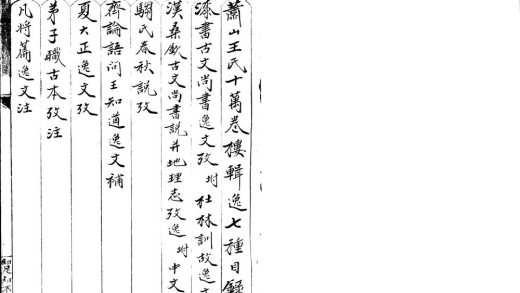 蕭山王氏十萬卷樓輯逸七種目録
漆書古文尚書逸文攷 坿杜林訓故逸文
漢桑欽古文尚書說并地理志攷逸 坿中文
騶氏春秋說攷
齊論語問王知道逸文補
夏大正逸文攷
弟子職古本攷注
凡將篇逸文注